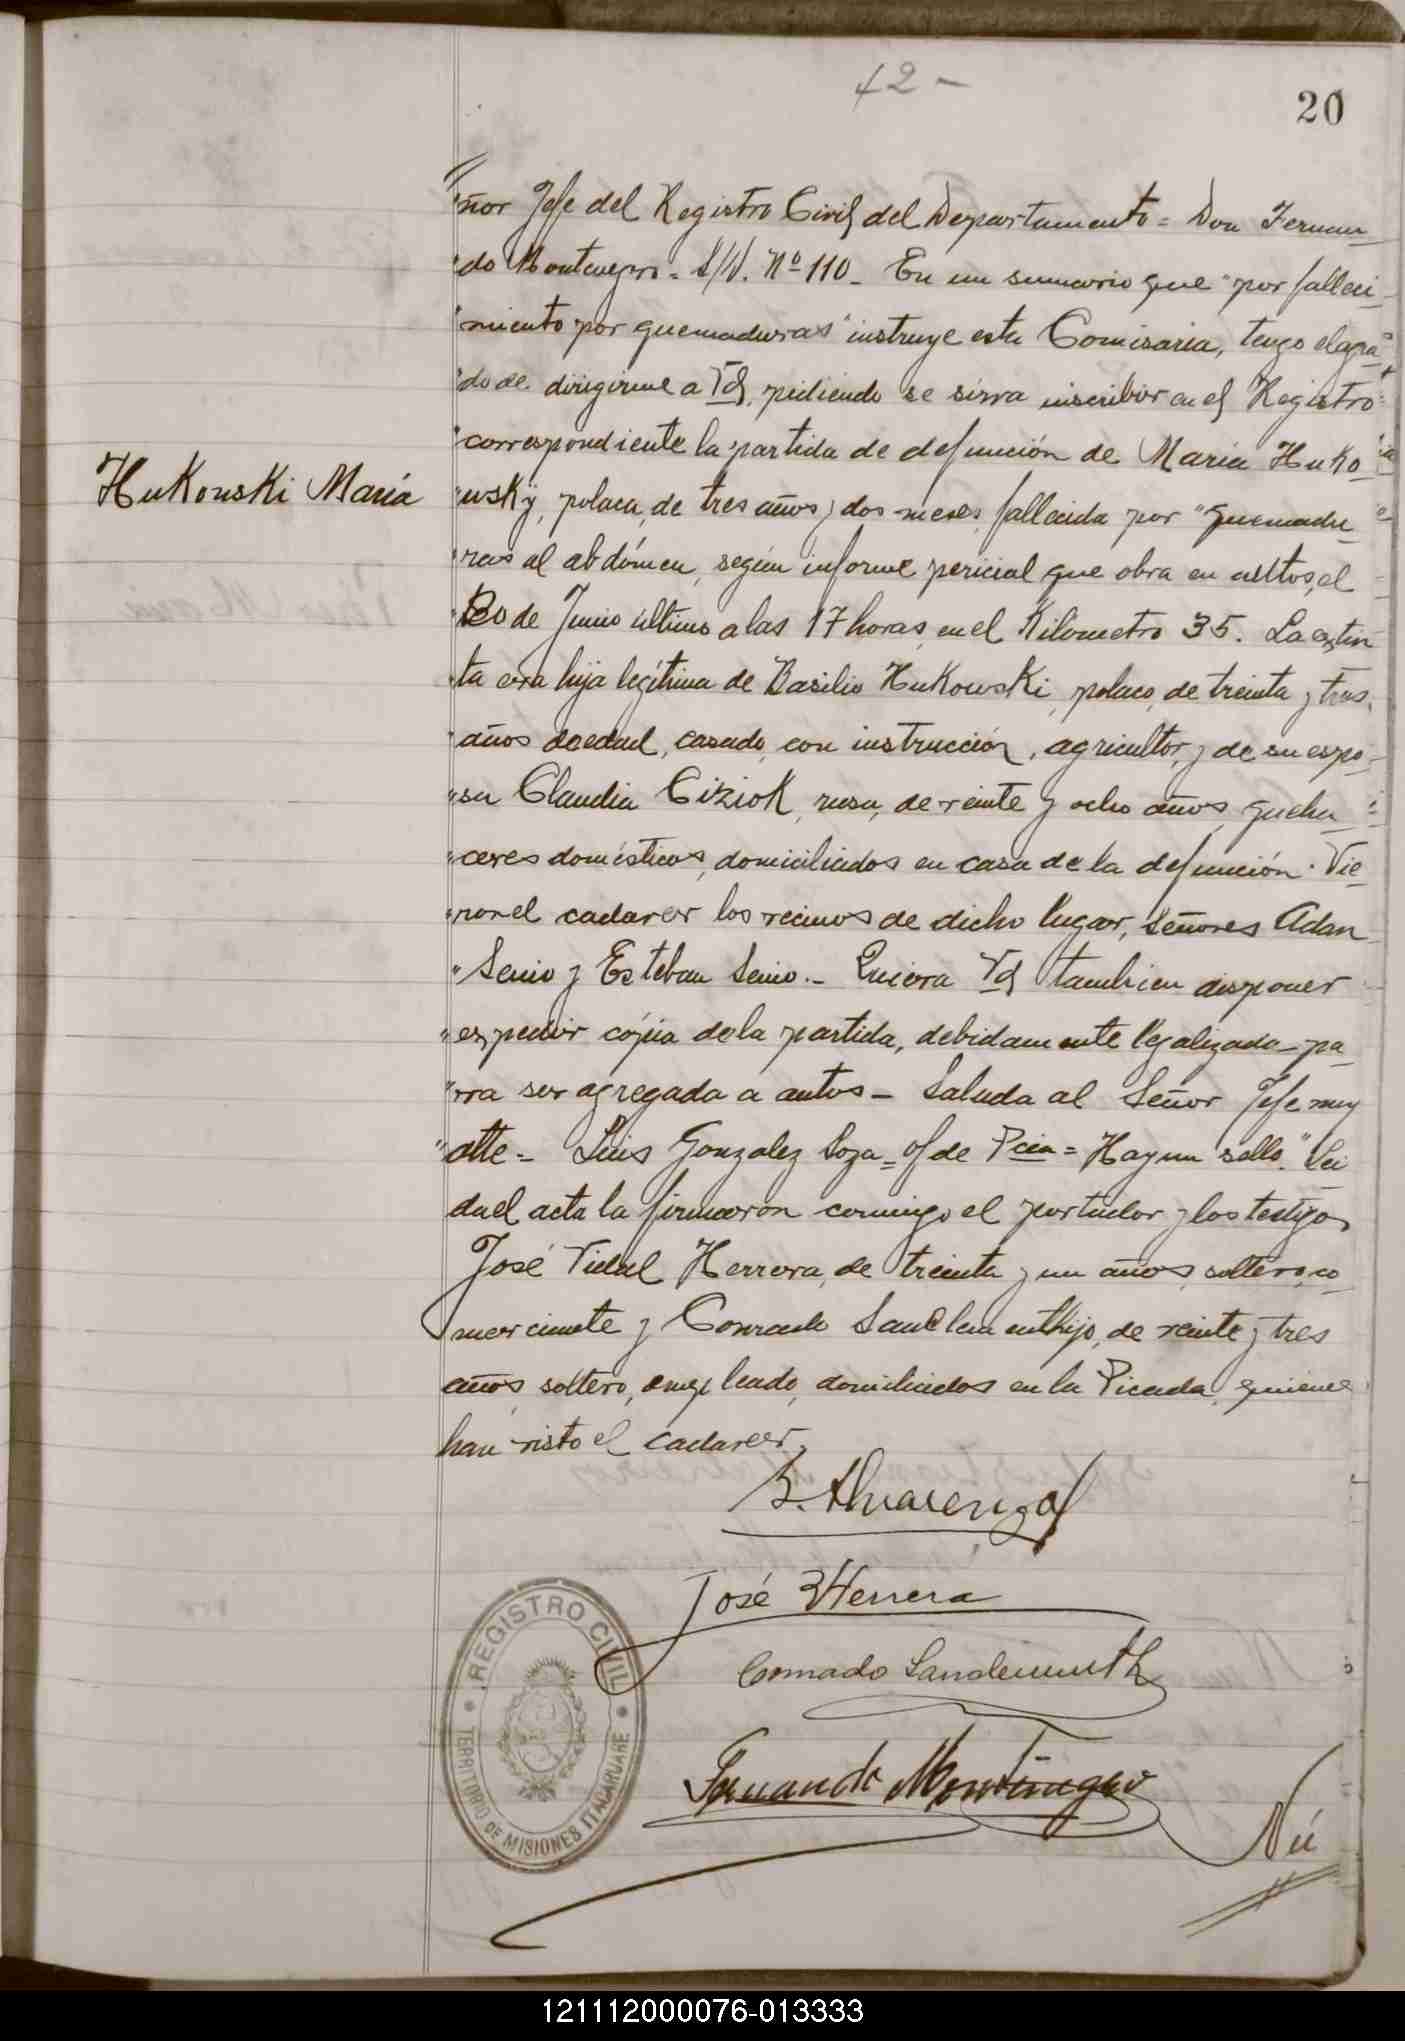 42 -
20
"ñor Jefe del Registro Civil del Departamento = Don Fernan-
"do Montenegro = S/D. Nº 110 - En un sumario que "por falleci-
"miento por quemaduras" instruye esta Comisaria, tengo el agra-
"do de dirigirme a Vd, pidiendo se sirva inscribir en el Registro
"correspondiente la partida de defunción de Maria Huko
Hukouski María
"wsky, polaca, de tres años y dos meses, fallecida por "quemadu
"ras al abdómen, según informe pericial que obra en autos, el
"20 de Junio último a las 17 horas, en el Kilometro 35. La extin
"ta era hija legítima de Basilio Hukowski, polaco, de treinta y tres
"años de edad, casado, con instrucción, agricultor, y de su espo-
"sa Claudia Ciziok, rusa, de veinte y ocho años, queha
"ceres domésticos, domiciliados en casa de la defunción. Vie-
"ron el cadaver los vecinos de dicho lugar, Señores Adan
"Senio y Esteban Senio.- Quiera Vd tambien disponer
"expedir cópia de la partida, debidamente legalizada - pa
"rra ser agregada a autos - Saluda al Señor Jefe muy
"atte = Luis Gonzalez Soza = of de Pcia = Hay un sello". Lei
da el acta la firmaron conmigo el portador y los testigos
José Vidal Herrera, de treinta y un años, soltero, co
merciante y Conrado Sandemuth hijo, de veinte y tres
años, soltero, empleado, domiciliados en la Picada, quienes
han visto el cadaver.
B. Alvarenga
José V Herrera
Conrado Sandemuth
Fernando Montenegro
REGISTRO CIVIL
TERRITORIO DE MISIONES ITACARUARE
121112000076-013333